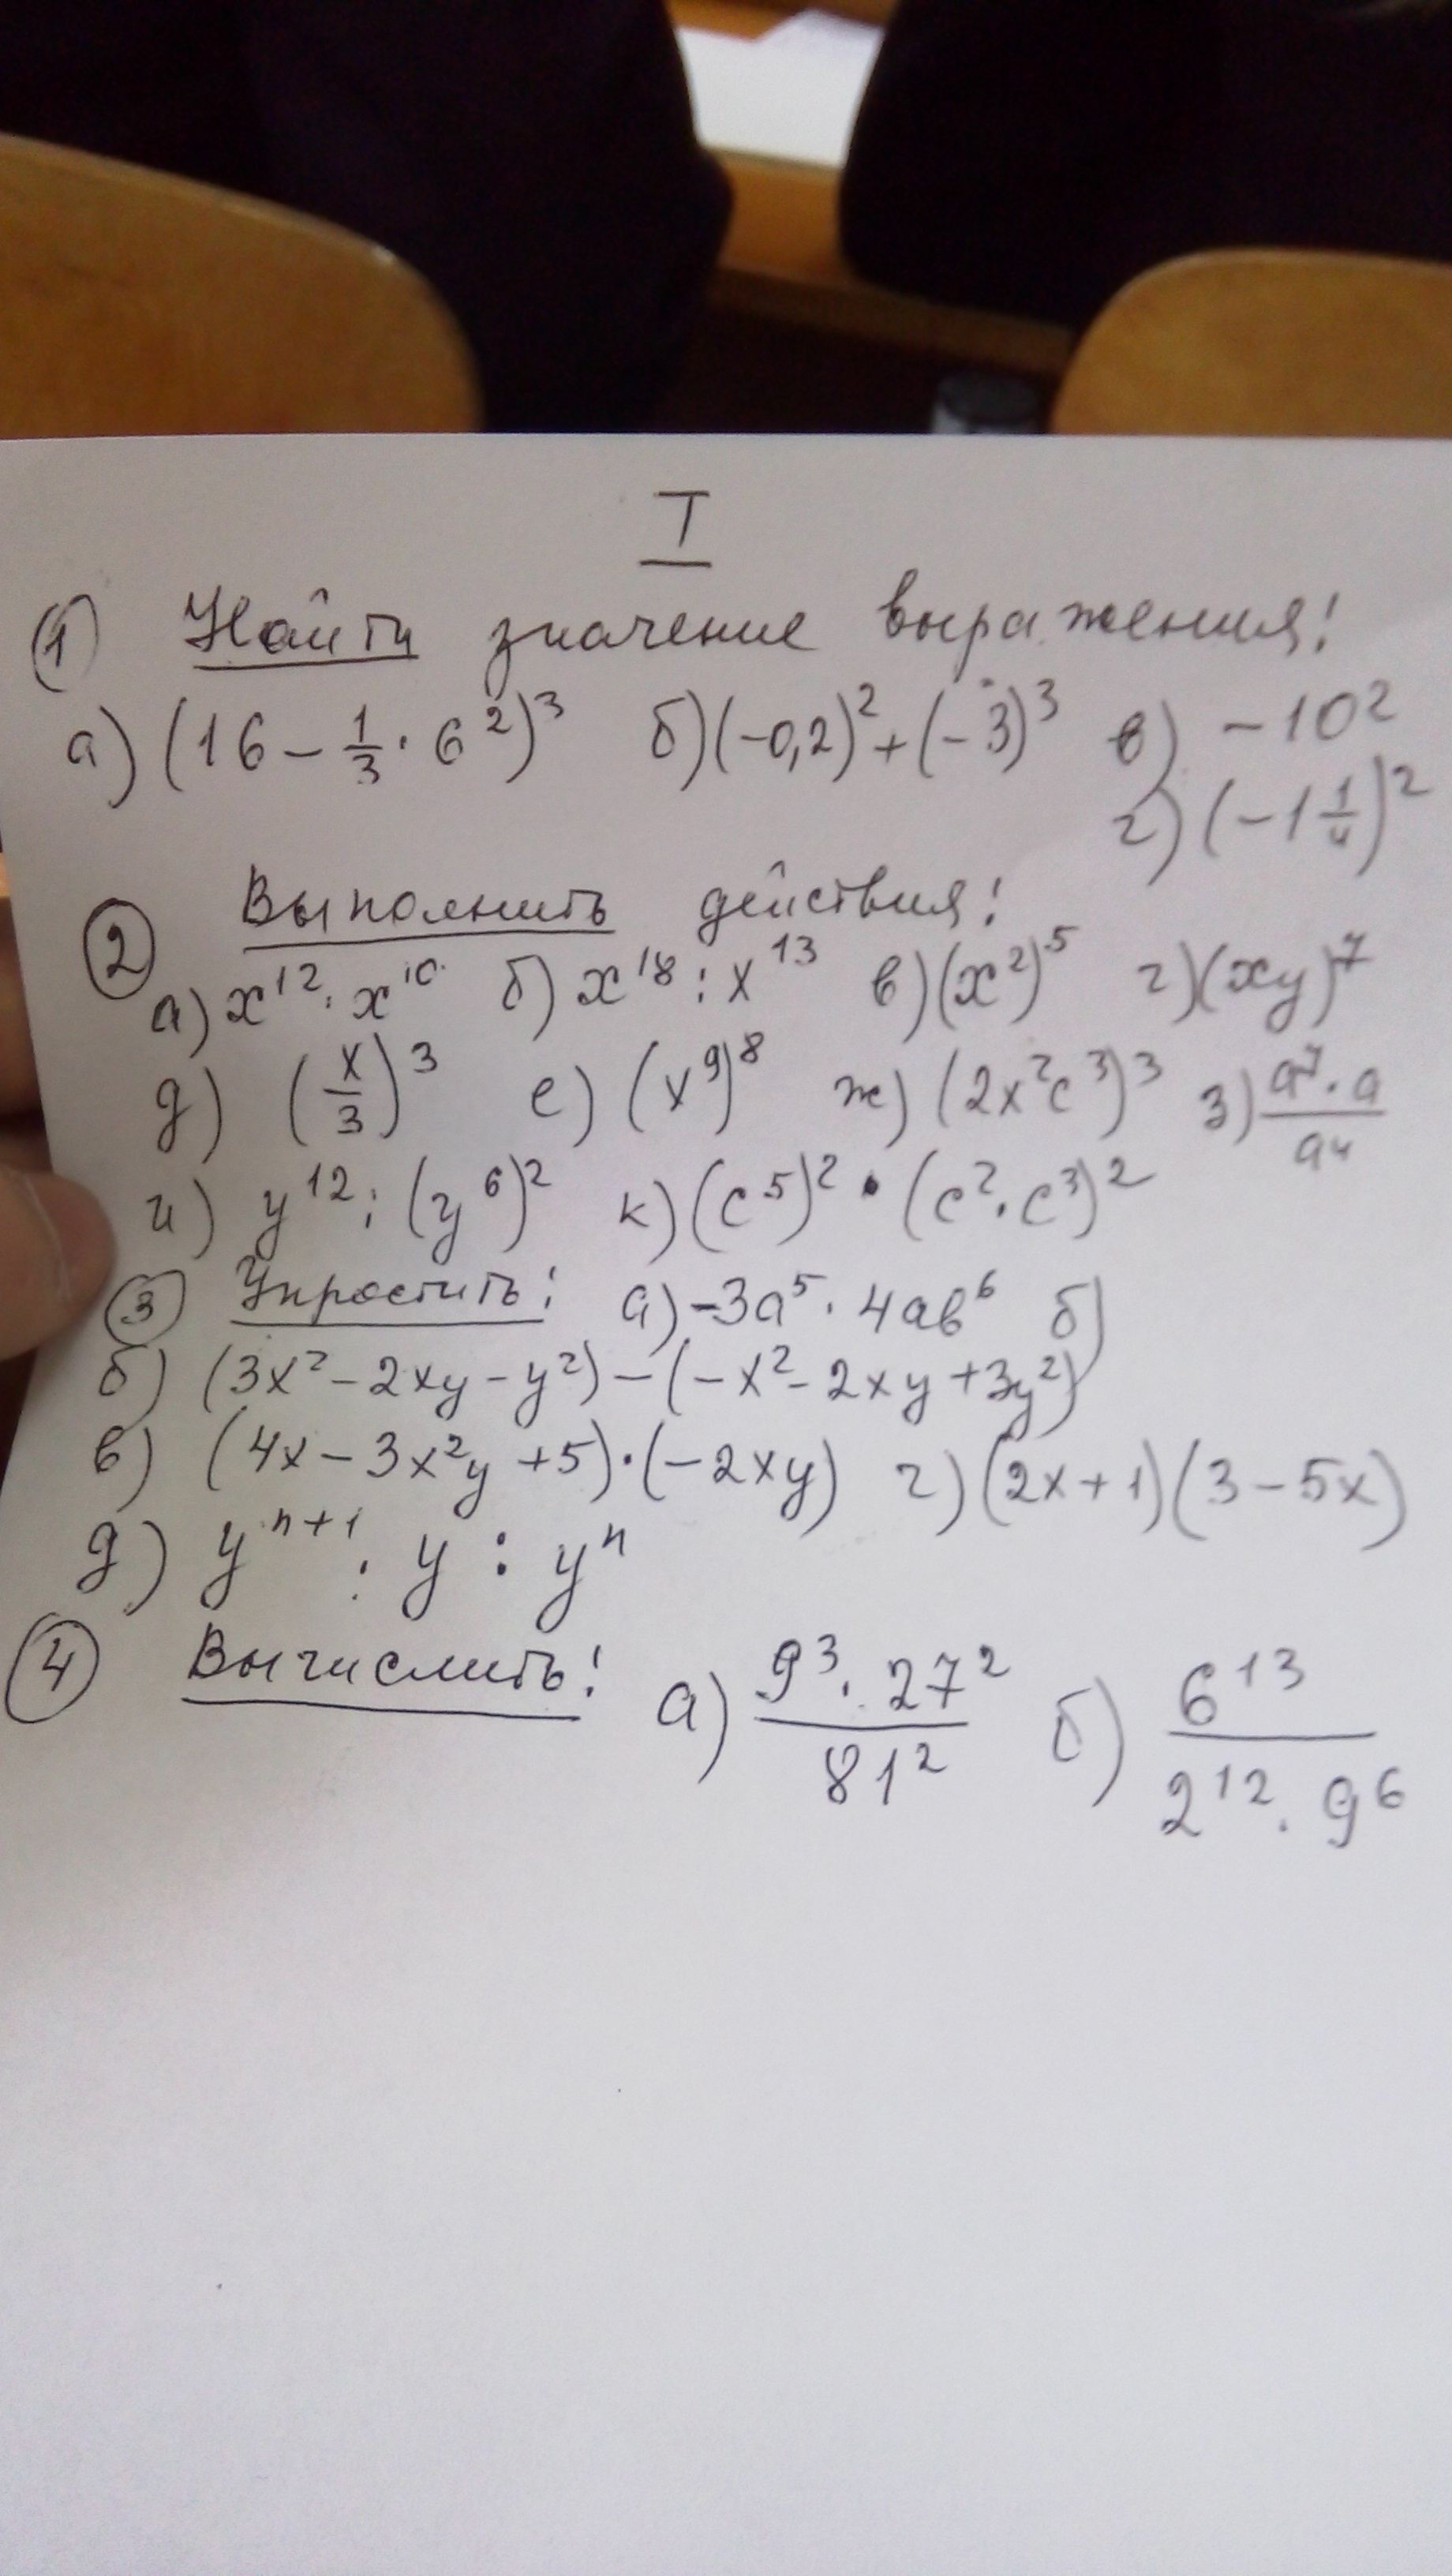 I
① Найти значение выражения!
а) (16 - 1/3 · 6²)³ б) (-0,2)² + (-3)³ в) -10²
г) (-1 1/4)²
② Выполнить действия!
а) x¹² · x¹⁰ б) x¹⁸ : x¹³ в) (x²)⁵ г) (xy)⁷
д) (x/3)³ е) (x⁹)⁸ ж) (2x²c³)³ з) a⁷·a/a⁴
и) y¹² : (y⁶)² к) (c⁵)² · (c² · c³)²
③ Упростить! а) -3a⁵ · 4ab⁶ б)
б) (3x² - 2xy - y²) - (-x² - 2xy + 3y²)
в) (4x - 3x²y + 5) · (-2xy) г) (2x + 1)(3 - 5x)
д) yⁿ⁺¹ : y : yⁿ
④ Вычислить! а) 9³ · 27²/81² б) 6¹³/2¹² · 9⁶